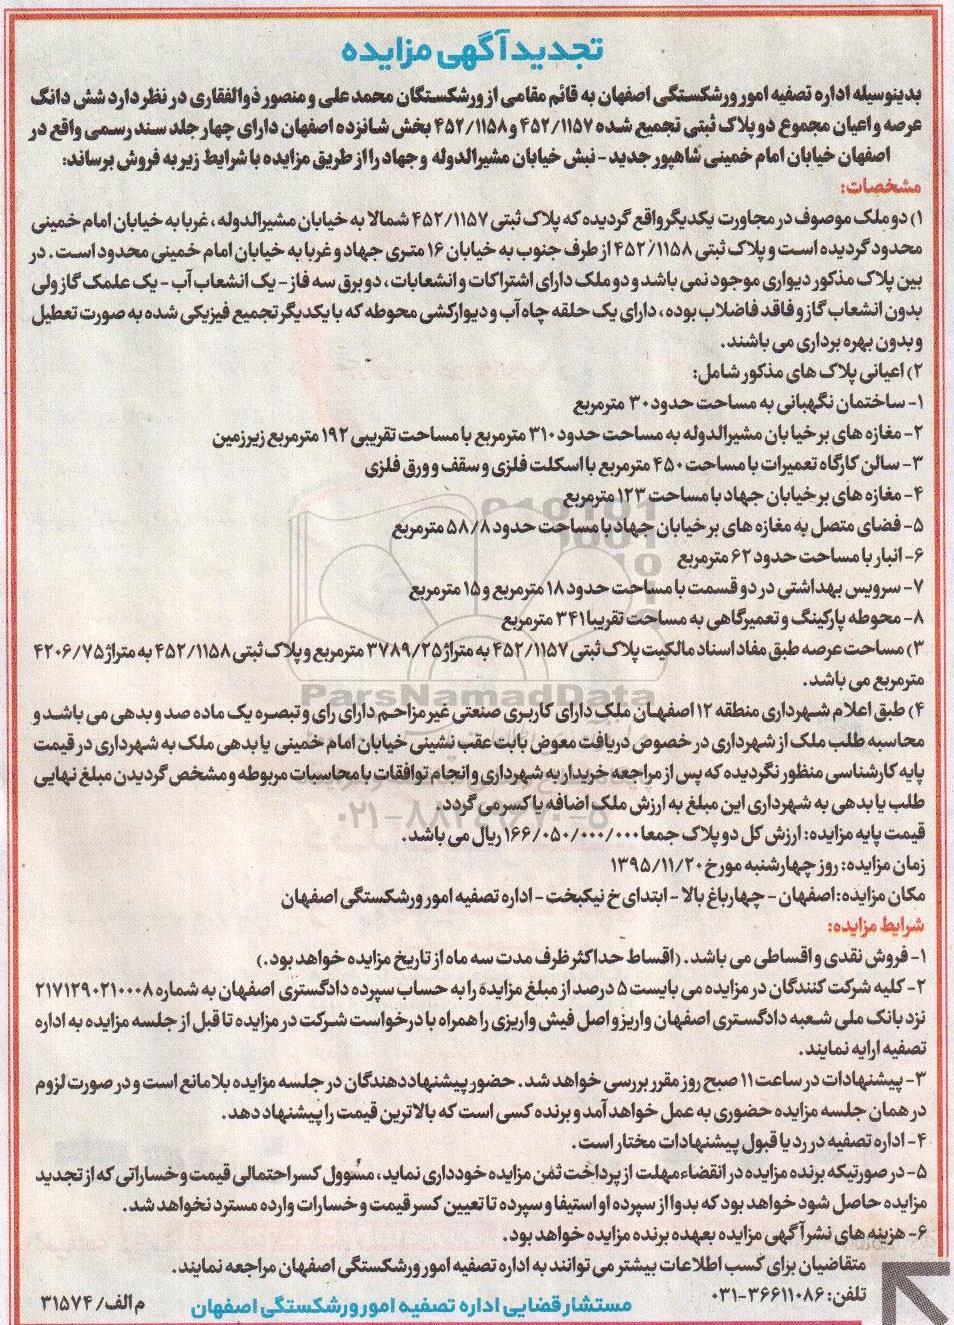 تجدید آگهی مزایده
بدینوسیله اداره تصفیه امور ورشکستگی اصفهان به قائم مقامی از ورشکستگان محمد علی و منصور ذوالفقاری در نظر دارد شش دانگ
عرصه و اعیان مجموع دو پلاک ثبتی تجمیع شده ۴۵۲/۱۱۵۷ و ۴۵۲/۱۱۵۸ بخش شانزده اصفهان دارای چهار جلد سند رسمی واقع در
اصفهان خیابان امام خمینی شاهپور جدید - نبش خیابان مشیرالدوله و جهاد را از طریق مزایده با شرایط زیر به فروش برساند:
مشخصات:
۱) دو ملک موصوف در مجاورت یکدیگر واقع گردیده که پلاک ثبتی ۴۵۲/۱۱۵۷ شمالا به خیابان مشیرالدوله، غربا به خیابان امام خمینی
محدود گردیده است و پلاک ثبتی ۴۵۲/۱۱۵۸ از طرف جنوب به خیابان ۱۶ متری جهاد و غربا به خیابان امام خمینی محدود است. در
بین پلاک مذکور دیواری موجود نمی باشد و دو ملک دارای اشتراکات و انشعابات، دو برق سه فاز - یک انشعاب آب - یک علمک گاز ولی
بدون انشعاب گاز و فاقد فاضلاب بوده، دارای یک حلقه چاه آب و دیوارکشی محوطه که با یکدیگر تجمیع فیزیکی شده به صورت تعطیل
و بدون بهره برداری می باشند.
۲) اعیانی پلاک های مذکور شامل:
۱- ساختمان نگهبانی به مساحت حدود ۳۰ مترمربع
۲- مغازه های بر خیابان مشیرالدوله به مساحت حدود ۳۱۰ مترمربع با مساحت تقریبی ۱۹۲ مترمربع زیرزمین
۳- سالن کارگاه تعمیرات با مساحت ۴۵۰ مترمربع با اسکلت فلزی و سقف و ورق فلزی
۴- مغازه های بر خیابان جهاد با مساحت ۱۲۳ مترمربع
۵- فضای متصل به مغازه های بر خیابان جهاد با مساحت حدود ۵۸/۸ مترمربع
۶- انبار با مساحت حدود ۶۲ مترمربع
۷- سرویس بهداشتی در دو قسمت با مساحت حدود ۱۸ مترمربع و ۱۵ مترمربع
۸- محوطه پارکینگ و تعمیرگاهی به مساحت تقریبا ۳۴۱ مترمربع
۳) مساحت عرصه طبق مفاد اسناد مالکیت پلاک ثبتی ۴۵۲/۱۱۵۷ به متراژ ۳۷۸۹/۲۵ مترمربع و پلاک ثبتی ۴۵۲/۱۱۵۸ به متراژ ۴۲۰۶/۷۵
مترمربع می باشد.
ParsNamadData
۴) طبق اعلام شهرداری منطقه ۱۲ اصفهان ملک دارای کاربری صنعتی غیر مزاحم دارای رای و تبصره یک ماده صد و بدهی می باشد و
محاسبه طلب ملک از شهرداری در خصوص دریافت معوض بابت عقب نشینی خیابان امام خمینی یا بدهی ملک به شهرداری در قیمت
پایه کارشناسی منظور نگردیده که پس از مراجعه خریدار به شهرداری و انجام توافقات با محاسبات مربوطه و مشخص گردیدن مبلغ نهایی
طلب یا بدهی به شهرداری این مبلغ به ارزش ملک اضافه یا کسر می گردد.
۰۲۱-۸۸۳۴۹۶۷۰-۵
قیمت پایه مزایده: ارزش کل دو پلاک جمعا ۱۶۶/۰۵۰/۰۰۰/۰۰۰ ریال می باشد.
زمان مزایده: روز چهارشنبه مورخ ۱۳۹۵/۱۱/۲۰
مکان مزایده: اصفهان - چهارباغ بالا - ابتدای خ نیکبخت - اداره تصفیه امور ورشکستگی اصفهان
شرایط مزایده:
۱- فروش نقدی و اقساطی می باشد. (اقساط حداکثر ظرف مدت سه ماه از تاریخ مزایده خواهد بود.)
۲- کلیه شرکت کنندگان در مزایده می بایست ۵ درصد از مبلغ مزایده را به حساب سپرده دادگستری اصفهان به شماره ۲۱۷۱۲۹۰۲۱۰۰۰۸
نزد بانک ملی شعبه دادگستری اصفهان واریز و اصل فیش واریزی را همراه با درخواست شرکت در مزایده تا قبل از جلسه مزایده به اداره
تصفیه ارایه نمایند.
۳- پیشنهادات در ساعت ۱۱ صبح روز مقرر بررسی خواهد شد. حضور پیشنهاد دهندگان در جلسه مزایده بلامانع است و در صورت لزوم
در همان جلسه مزایده حضوری به عمل خواهد آمد و برنده کسی است که بالاترین قیمت را پیشنهاد دهد.
۴- اداره تصفیه در رد یا قبول پیشنهادات مختار است.
۵- در صورتیکه برنده مزایده در انقضاء مهلت از پرداخت ثمن مزایده خودداری نماید، مسوول کسر احتمالی قیمت و خساراتی که از تجدید
مزایده حاصل شود خواهد بود که بدوا از سپرده او استیفا و سپرده تا تعیین کسر قیمت و خسارات وارده مسترد نخواهد شد.
۶- هزینه های نشر آگهی مزایده بعهده برنده مزایده خواهد بود.
متقاضیان برای کسب اطلاعات بیشتر می توانند به اداره تصفیه امور ورشکستگی اصفهان مراجعه نمایند.
تلفن: ۳۶۶۱۱۰۸۶-۰۳۱
مستشار قضایی اداره تصفیه امور ورشکستگی اصفهان
م الف/ ۳۱۵۷۴